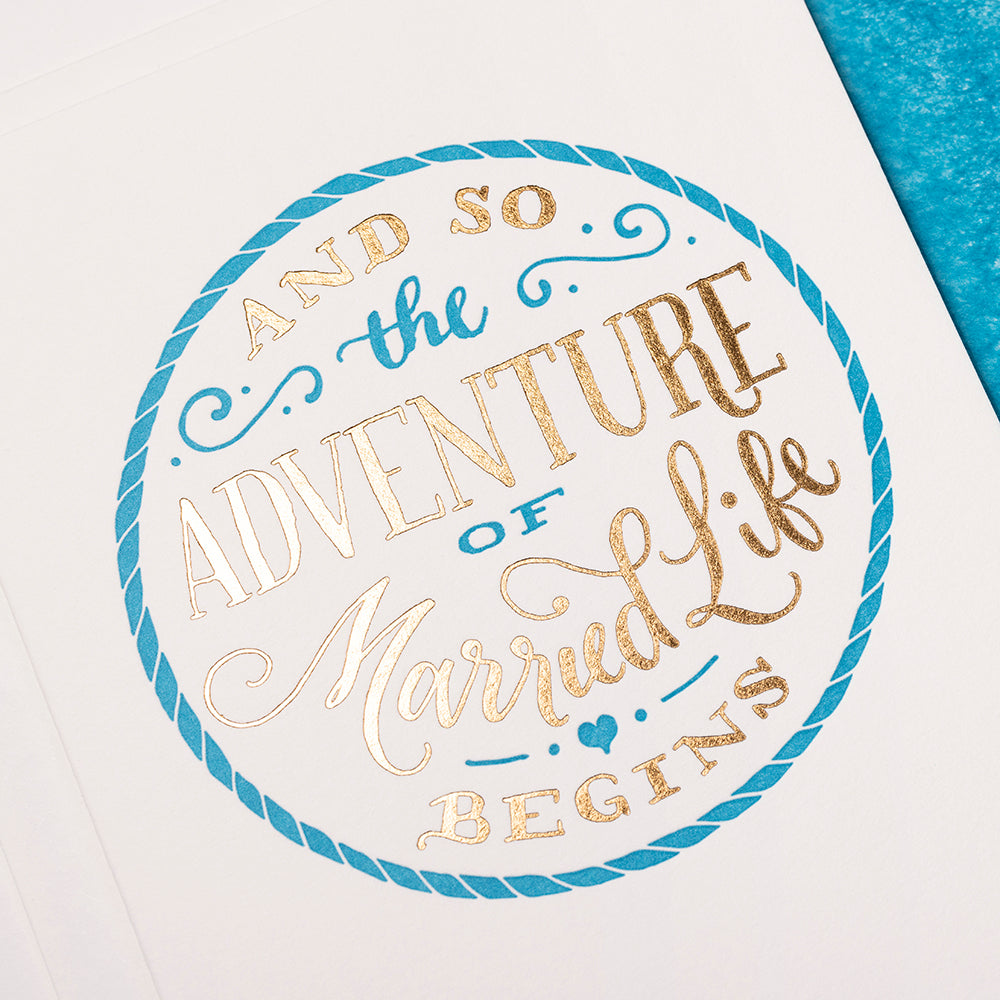 AND SO
the
ADVENTURE
OF
Married Life
BEGINS